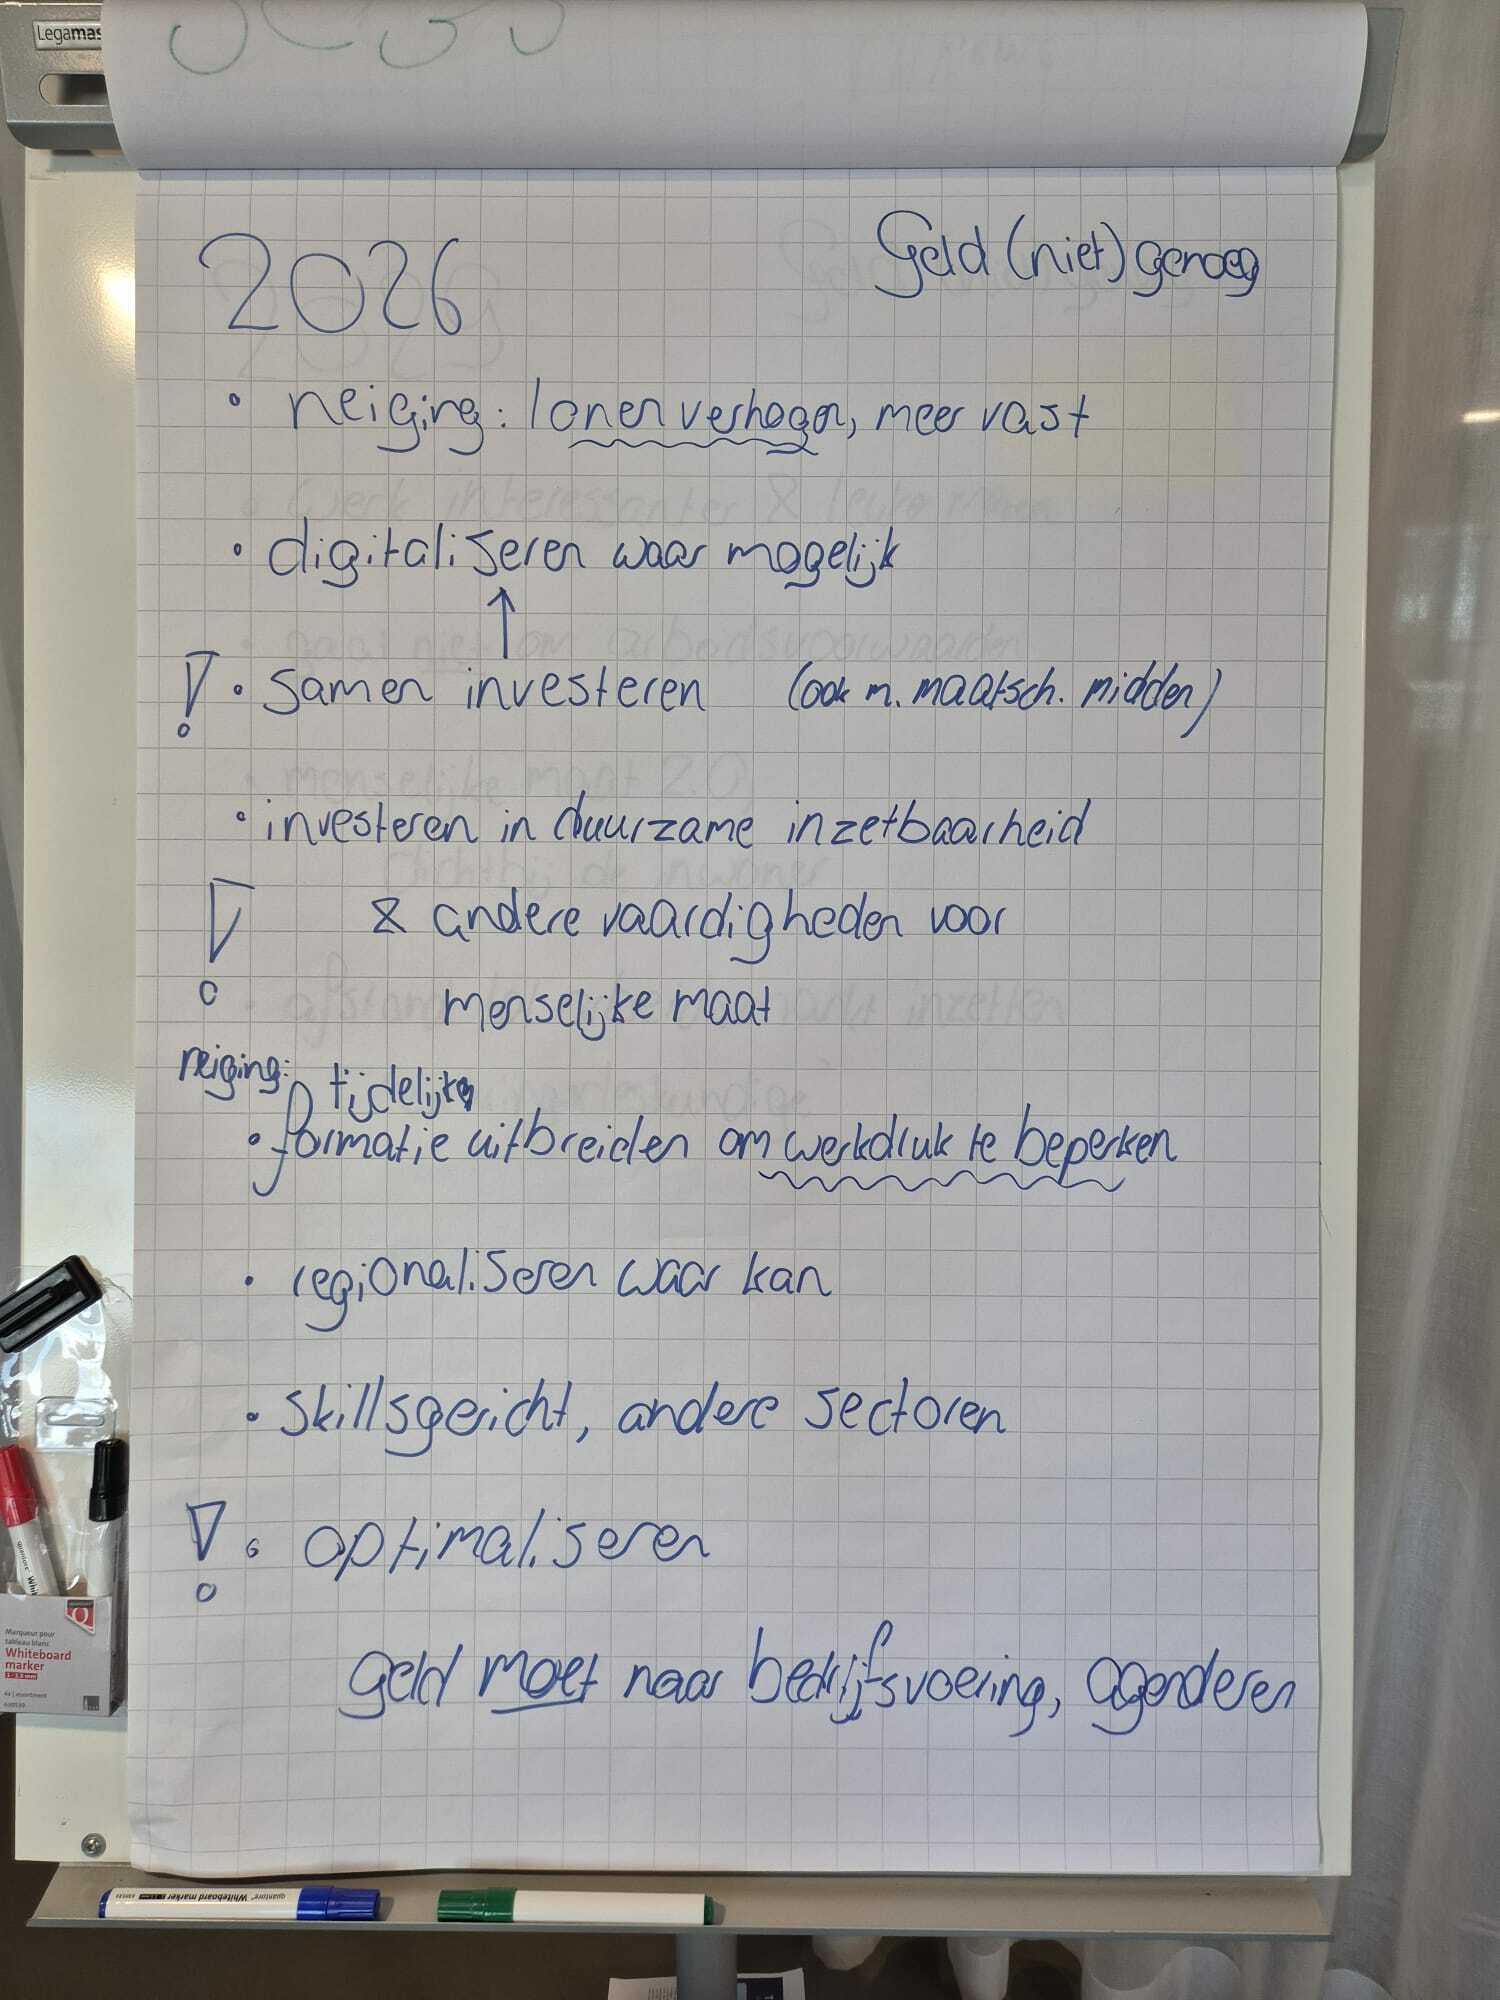 Legamas
2026
Geld (niet) genoeg
• neiging: lonen verhogen, meer vast
• digitaliseren waar mogelijk
↑
! • samen investeren (ook m. maatsch. midden)
• investeren in duurzame inzetbaarheid
! & andere vaardigheden voor
menselijke maat
neiging: tijdelijke
• formatie uitbreiden om werkdruk te beperken
• regionaliseren waar kan
• skillsgericht, andere sectoren
! • optimaliseren
geld moet naar bedrijfsvoering, agenderen
Marqueur pour
tableau blanc
Whiteboard
marker
quantore Whiteboard marker